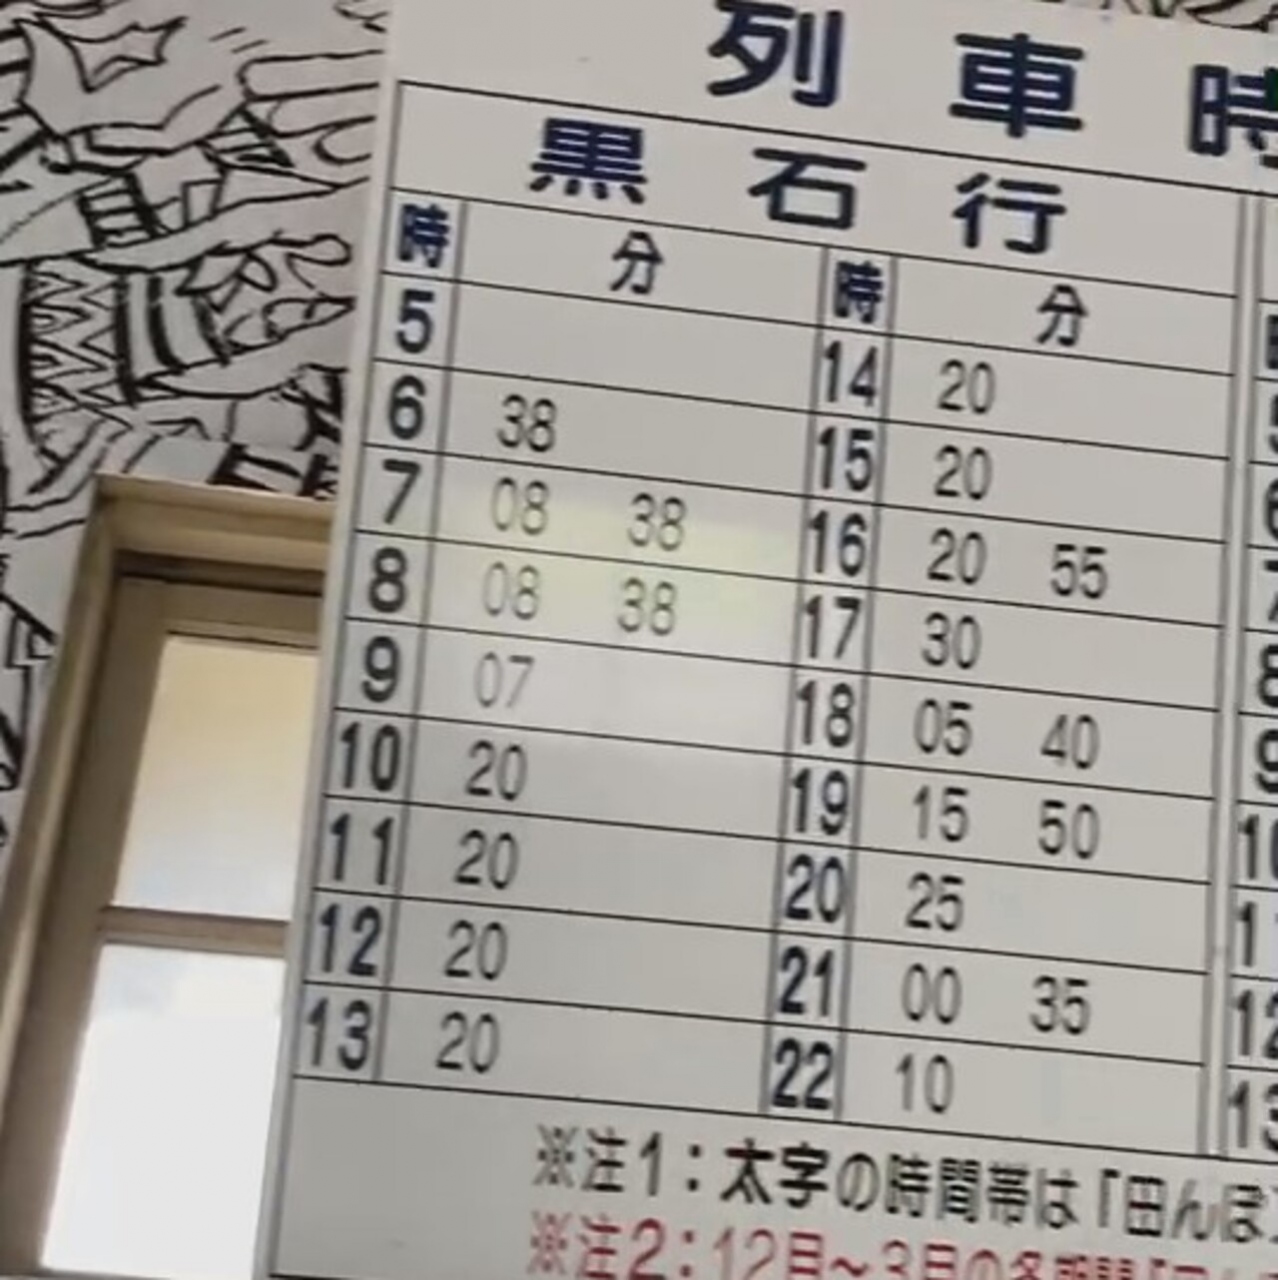 列車時
黒石行
時 分 時 分
5 14 20
6 38 15 20
7 08 38 16 20 55
8 08 38 17 30
9 07 18 05 40
10 20 19 15 50
11 20 20 25
12 20 21 00 35
13 20 22 10
5
6
7
8
9
10
11
12
13
※注1：太字の時間帯は「田んぼ
※注2：12月～3月の冬期間「